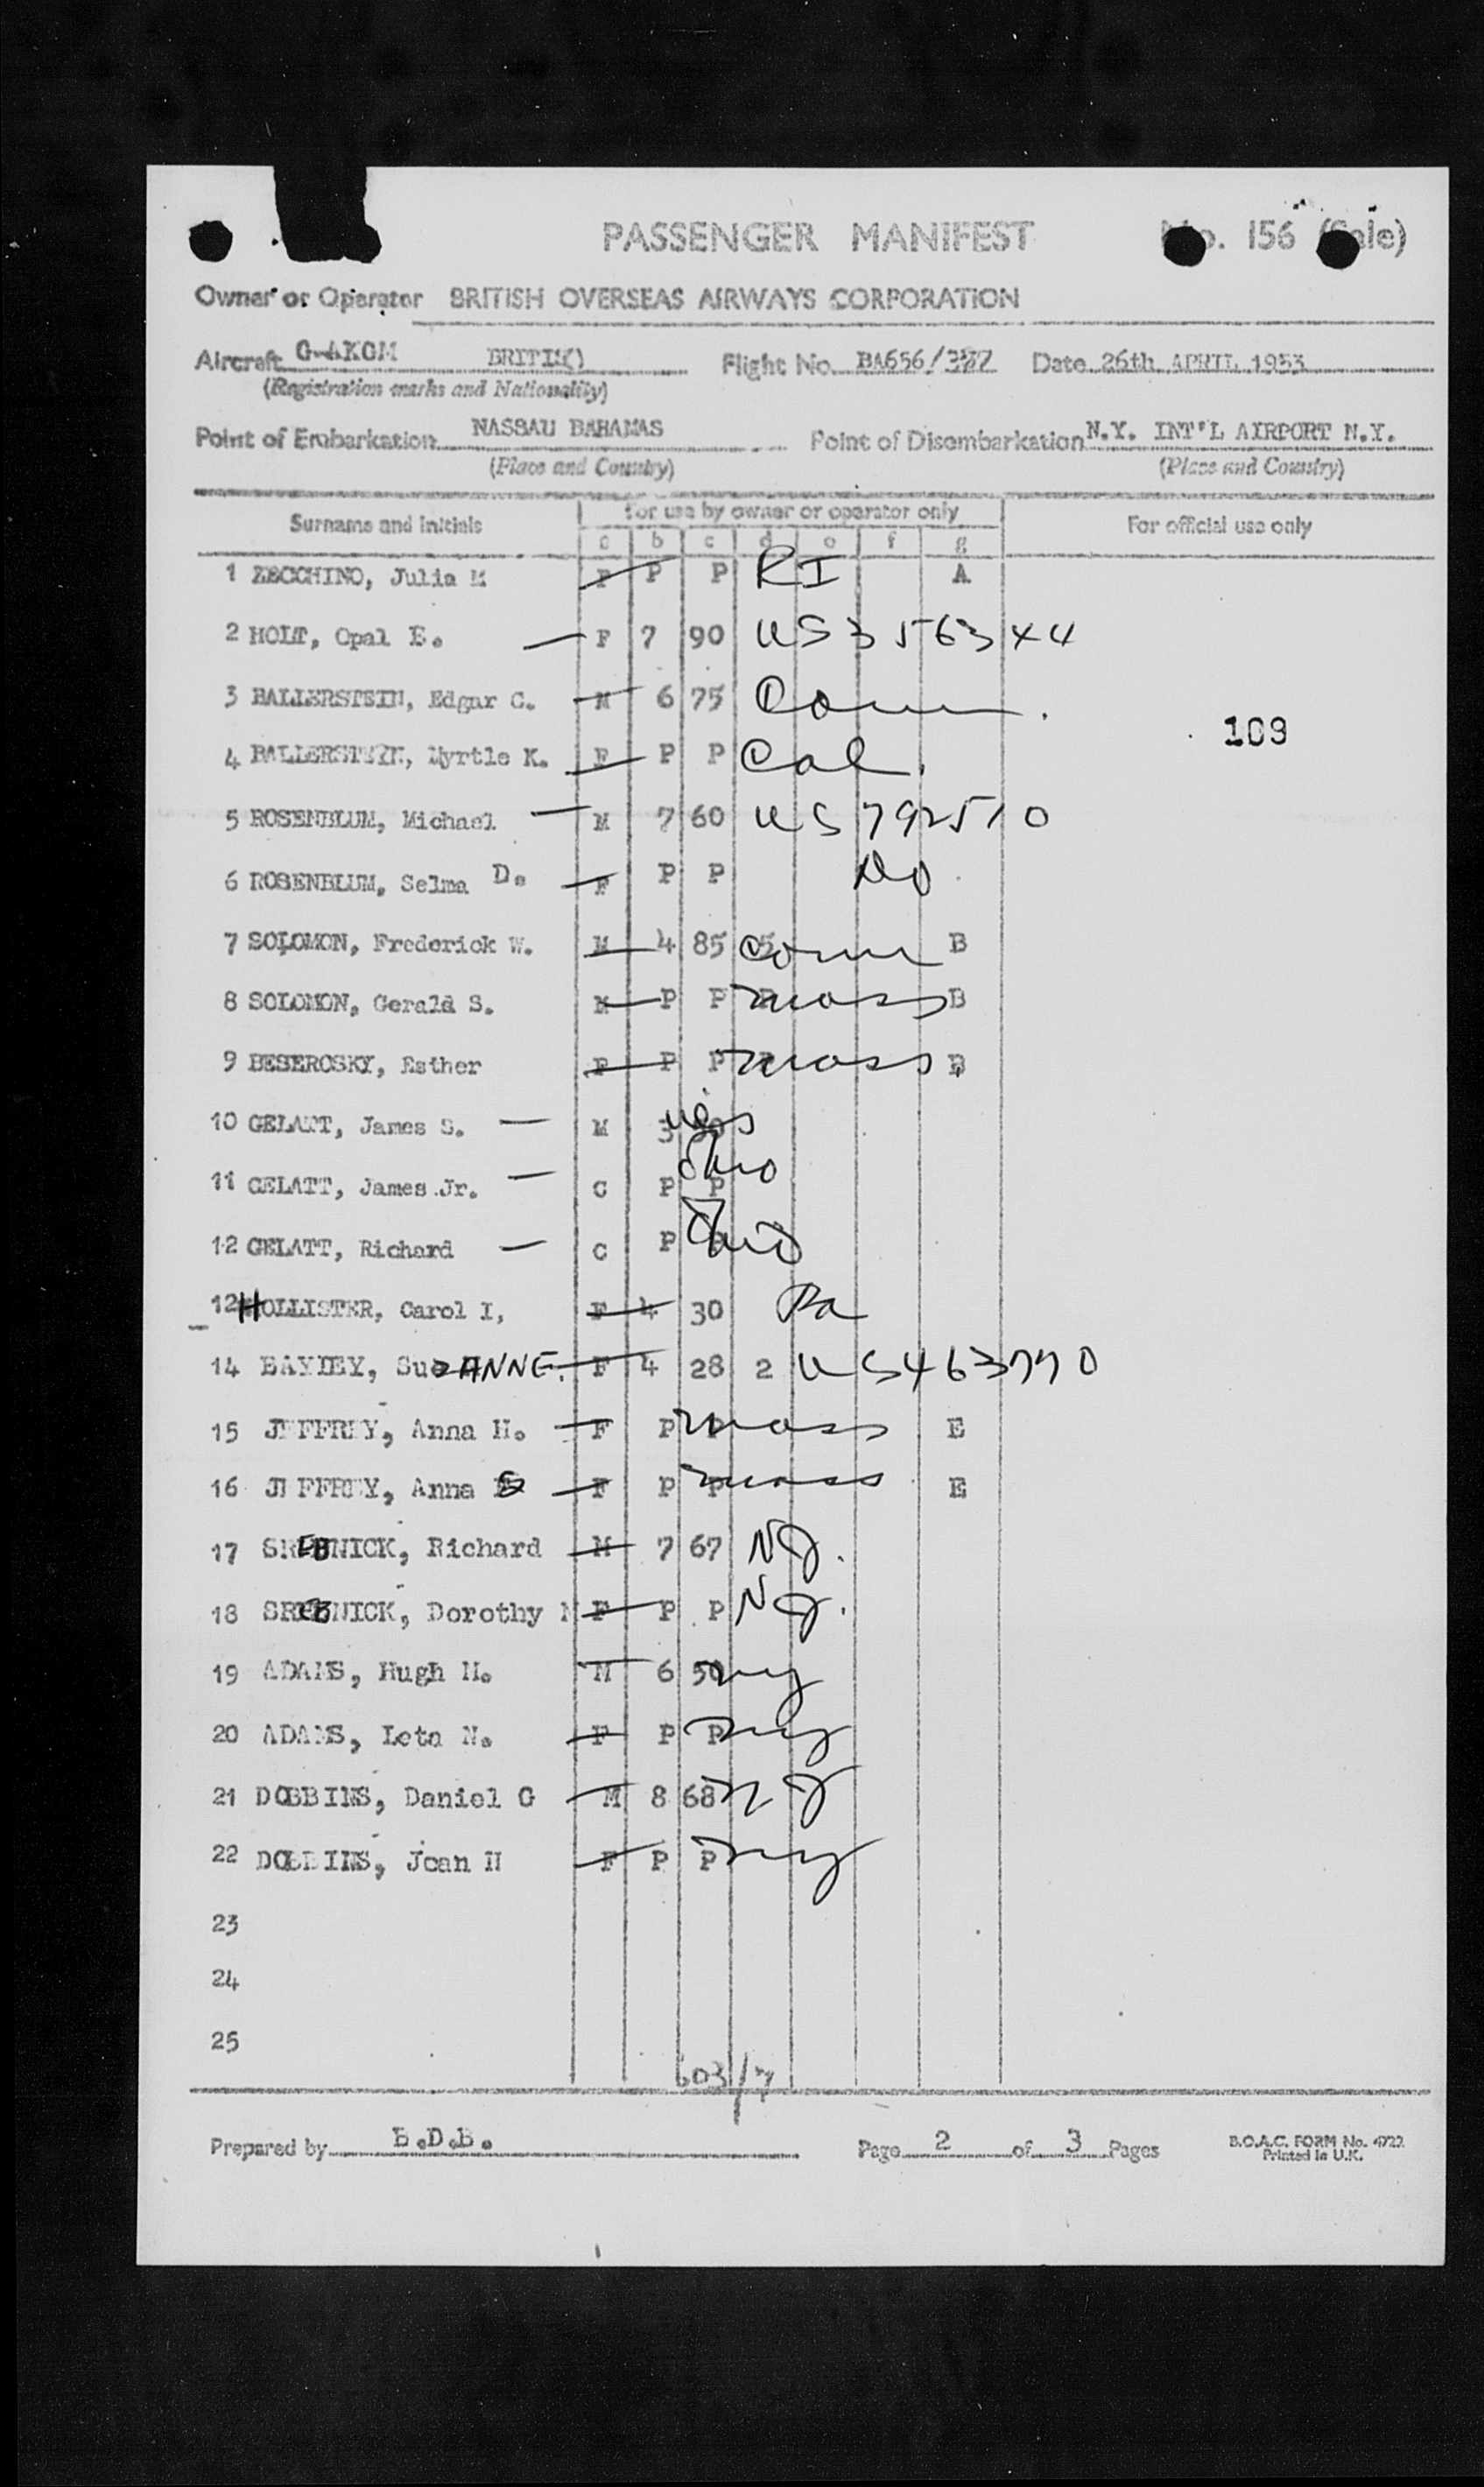 PASSENGER MANIFEST No. 156 (Sale)
Owner or Operator BRITISH OVERSEAS AIRWAYS CORPORATION
Aircraft G-AKGM Flight No. BA656/ Date 26th APRIL 1953
(Registration marks and Nationality)
Point of Embarkation NASSAU BAHAMAS Point of Disembarkation N.Y. INT'L AIRPORT N.Y.
(Place and Country) (Place and Country)
Surname and initials For use by owner or operator only For official use only
a b c d e f g
1 ZECCHINO, Julia M F P P RI A
2 HOLT, Opal E. F 7 90 US 356344
3 BALLERSTEIN, Edgar C. M 6 75 Conn.
109
4 BALLERSTEIN, Myrtle K. F P P Cal.
5 ROSENBLUM, Michael M 7 60 US 792510
6 ROSENBLUM, Selma D. F P P Do
7 SOLOMON, Frederick W. M 4 85 Conn B
8 SOLOMON, Gerald S. M P P mass B
9 BESEROSKY, Esther F P P mass B
10 GELATT, James S. M 3 Wis
11 GELATT, James Jr. C P P Ohio
12 GELATT, Richard C P Ohio
12 HOLLISTER, Carol I, F 4 30 Pa
14 BAYLEY, SuzANNE. F 4 28 2 US 463770
15 JEFFREY, Anna H. F P mass E
16 JEFFREY, Anna F P P mass E
17 SREBNICK, Richard M 7 67 NJ.
18 SREBNICK, Dorothy F P P NJ.
19 ADAMS, Hugh M. M 6 50 ny
20 ADAMS, Leta N. F P P ny
21 DOBBINS, Daniel G M 8 68 NJ
22 DOBBINS, Jean H F P P ny
23
24
25
603/7
Prepared by B.D.B. Page 2 of 3 Pages B.O.A.C. FORM No. 4722
Printed in U.K.